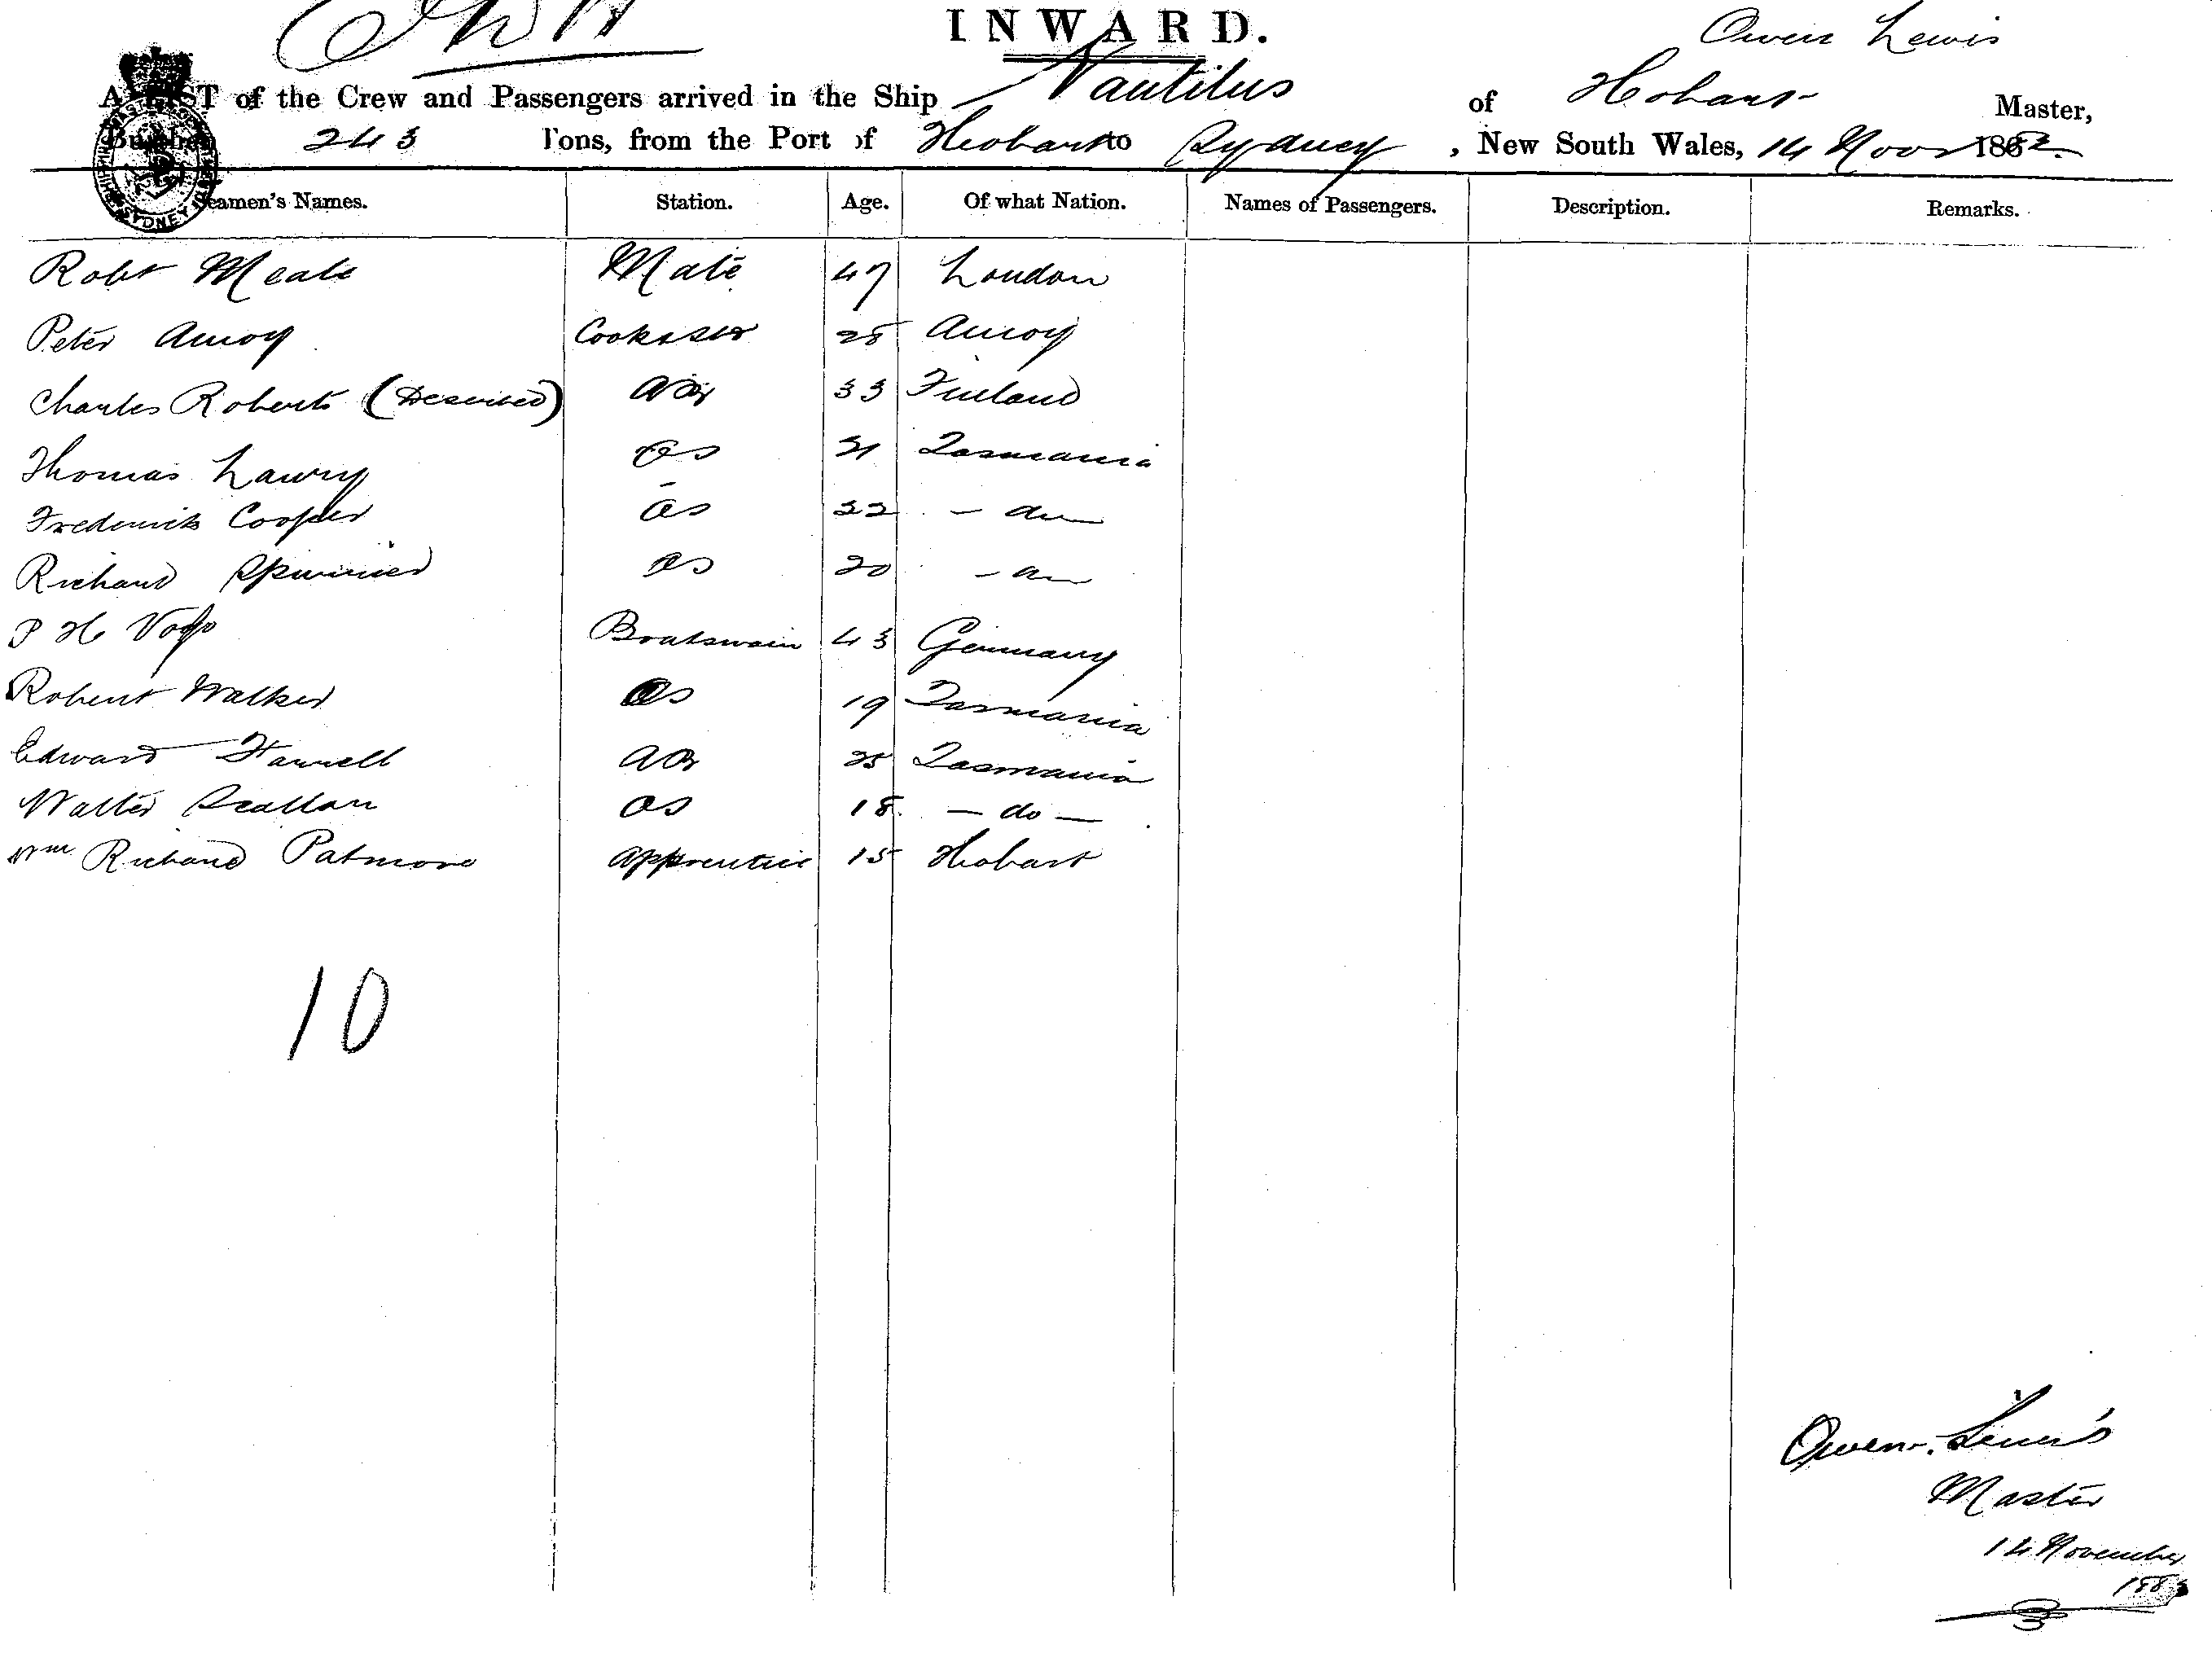 INWARD.
Owen Lewis
A LIST of the Crew and Passengers arrived in the Ship Nautilus of Hobart Master,
Burthen 243 Tons, from the Port of Hobart to Sydney, New South Wales, 14 Novr 1882
Seamen's Names. Station. Age. Of what Nation. Names of Passengers. Description. Remarks.
Robt Meale Mate 47 London
Peter Amoy Cook & Std 28 Amoy
Charles Roberts (Deserted) AB 33 Finland
Thomas Lawry OS 21 Tasmania
Frederick Cooper OS 22 - do -
Richard OS 20 - do -
P H Boatswain 43 Germany
Robert Walker OS 19 Tasmania
Edward Farrell AB 25 Tasmania
Walter Scallan OS 18 - do -
Wm Richard Patmore Apprentice 15 Hobart
10
Owen Lewis
Master
14 November